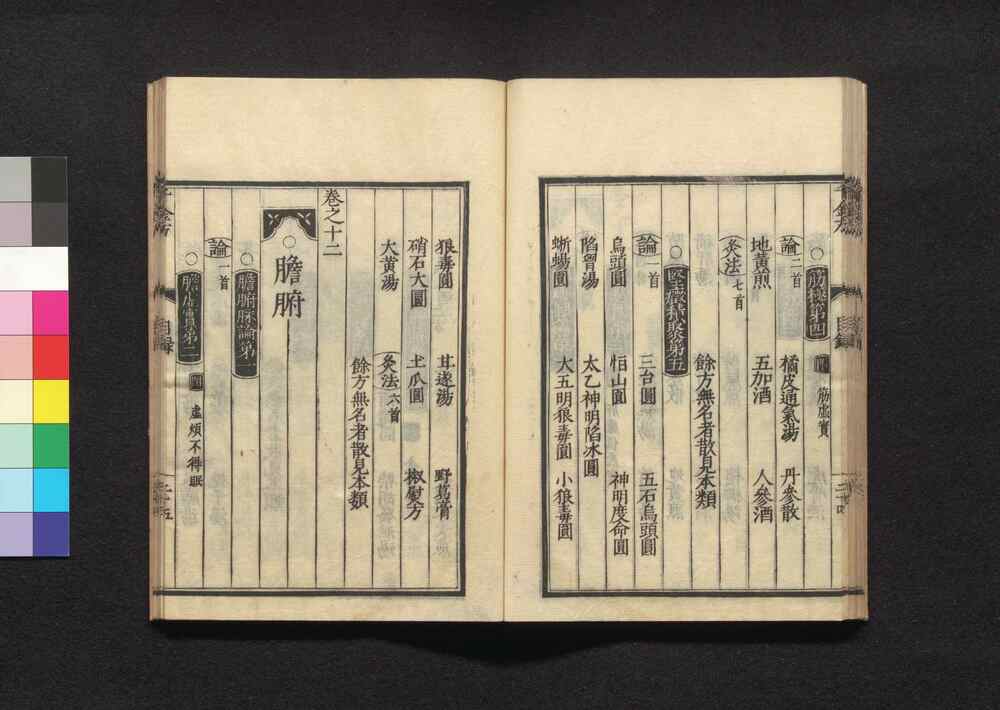 筋極第四 附 筋虛實
論二首 橘皮通氣湯 丹參散
地黃煎 五加酒 人參酒
灸法七首
餘方無名者散見本類
堅癥積聚第五
論一首 三台圓 五石烏頭圓
烏頭圓 恒山圓 神明度命圓
陷胷湯 太乙神明陷冰圓
蜥蜴圓 大五明狼毒圓 小狼毒圓
狼毒圓 甘遂湯 野葛膏
硝石大圓 土瓜圓 椒熨方
大黃湯 灸法六首
餘方無名者散見本類
卷之十二
膽腑
膽腑脉論第一
論一首
膽虛實第二 附 虛煩不得眠